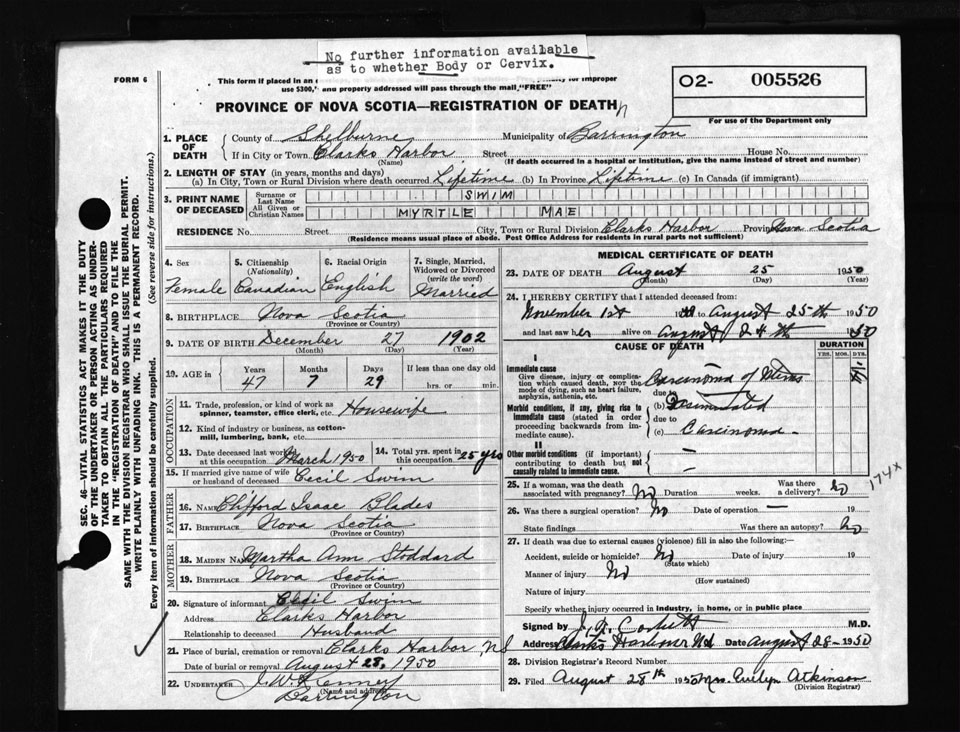 No further information available
as to whether Body or Cervix.
FORM 6
This form if placed in an
for improper
use $300, and property addressed will pass through the mail, "FREE"
O2- 005526
For use of the Department only
PROVINCE OF NOVA SCOTIA—REGISTRATION OF DEATH
1. PLACE OF DEATH County of Shelburne Municipality of Barrington
If in City or Town Clarks Harbor Street House No.
(Name) (If death occurred in a hospital or institution, give the name instead of street and number)
2. LENGTH OF STAY (in years, months and days)
(a) In City, Town or Rural Division where death occurred Lifetime (b) In Province Lifetime (c) In Canada (if immigrant)
3. PRINT NAME OF DECEASED Surname or Last Name SWIM
All Given or Christian Names MYRTLE MAE
RESIDENCE No. Street City, Town or Rural Division Clarks Harbor Province Nova Scotia
(Residence means usual place of abode. Post Office Address for residents in rural parts not sufficient)
4. Sex Female
5. Citizenship (Nationality) Canadian
6. Racial Origin English
7. Single, Married, Widowed or Divorced (write the word) Married
8. BIRTHPLACE Nova Scotia
(Province or Country)
9. DATE OF BIRTH December 27 1902
(Month) (Day) (Year)
10. AGE in Years 47 Months 7 Days 29 If less than one day old
hrs. or min.
OCCUPATION
11. Trade, profession, or kind of work as spinner, teamster, office clerk, etc. Housewife
12. Kind of industry or business, as cotton-mill, lumbering, bank, etc.
13. Date deceased last worked at this occupation March 1950 14. Total yrs. spent in this occupation 25 yrs
15. If married give name of wife or husband of deceased Cecil Swim
FATHER
16. Name Clifford Isaac Blades
17. Birthplace Nova Scotia
MOTHER
18. Maiden Name Martha Ann Stoddard
19. Birthplace Nova Scotia
(Province or Country)
20. Signature of informant Cecil Swim
Address Clarks Harbor
Relationship to deceased Husband
21. Place of burial, cremation or removal Clarks Harbor NS
Date of burial or removal August 28, 1950
22. UNDERTAKER J.W. Kenney
(Name and address)
Barrington
MEDICAL CERTIFICATE OF DEATH
23. DATE OF DEATH August 25 1950
(Month) (Day) (Year)
24. I HEREBY CERTIFY that I attended deceased from:
November 1st to August 25th 1950
and last saw her alive on August 24th 1950
CAUSE OF DEATH DURATION
YRS. MOS. DYS.
I
Immediate cause
Give disease, injury or complication which caused death, NOT the mode of dying, such as heart failure, asphyxia, asthenia, etc.
Carcinoma of Uterus
due to
Morbid conditions, if any, giving rise to immediate cause (stated in order proceeding backwards from immediate cause).
(b)
due to
(c) Carcinoma
II
Other morbid conditions (if important) contributing to death but not causally related to immediate cause.
25. If a woman, was the death associated with pregnancy? No Duration weeks. Was there a delivery? No
174x
26. Was there a surgical operation? No Date of operation — 19
State findings Was there an autopsy? No
27. If death was due to external causes (violence) fill in also the following:—
Accident, suicide or homicide? No Date of injury 19
(State which)
Manner of injury No
(How sustained)
Nature of injury
Specify whether injury occurred in industry, in home, or in public place
Signed by M.D.
Address Clarks Harbour NS Date August 28 - 1950
28. Division Registrar's Record Number
29. Filed August 28th 1950 Mrs. Evelyn Atkinson
(Division Registrar)
SEC. 46—VITAL STATISTICS ACT MAKES IT THE DUTY
OF THE UNDERTAKER OR PERSON ACTING AS UNDER-
TAKER TO OBTAIN ALL THE PARTICULARS REQUIRED
IN THE "REGISTRATION OF DEATH" AND TO FILE THE
SAME WITH THE DIVISION REGISTRAR WHO SHALL ISSUE THE BURIAL PERMIT.
WRITE PLAINLY WITH UNFADING INK. THIS IS A PERMANENT RECORD.
Every item of information should be carefully supplied. (See reverse side for instructions.)